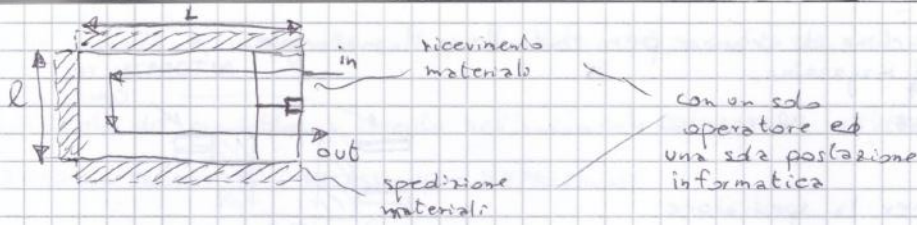 L
l
in
out
ricevimento
materiali
spedizione
materiali
con un solo
operatore ed
una sola postazione
informatica